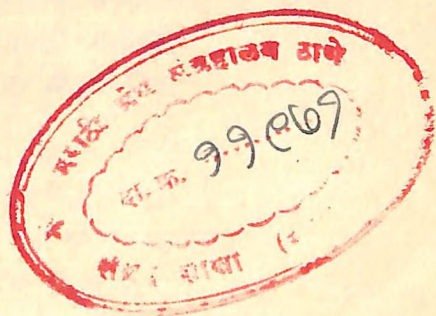 मराठी ग्रंथ संग्रहालय ठाणे
दा. क्र. ११९७१
शाखा